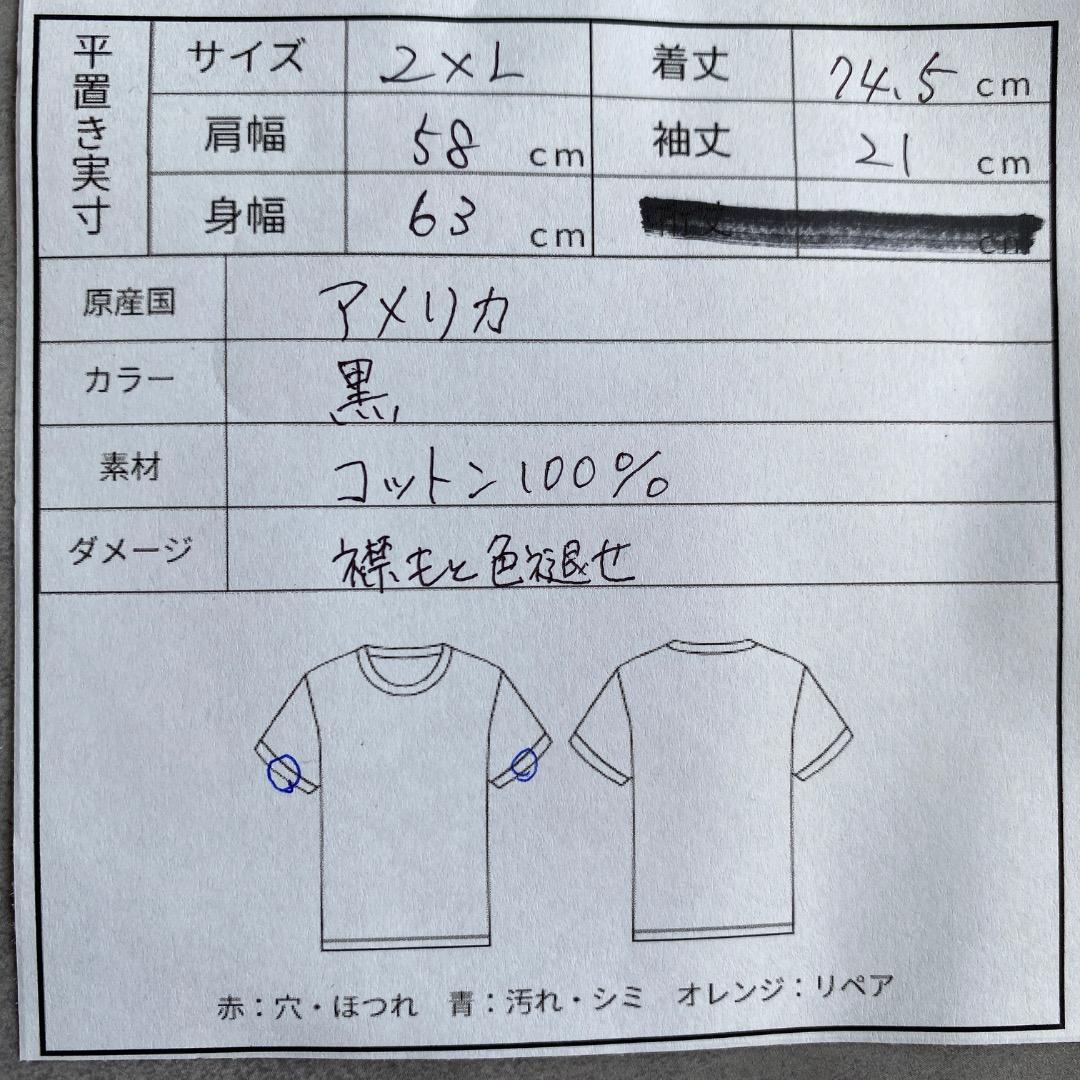 平置き実寸
サイズ 2XL 着丈 74.5 cm
肩幅 58 cm 袖丈 21 cm
身幅 63 cm cm
原産国 アメリカ
カラー 黒
素材 コットン100%
ダメージ 襟もと色褪せ
赤：穴・ほつれ 青：汚れ・シミ オレンジ：リペア